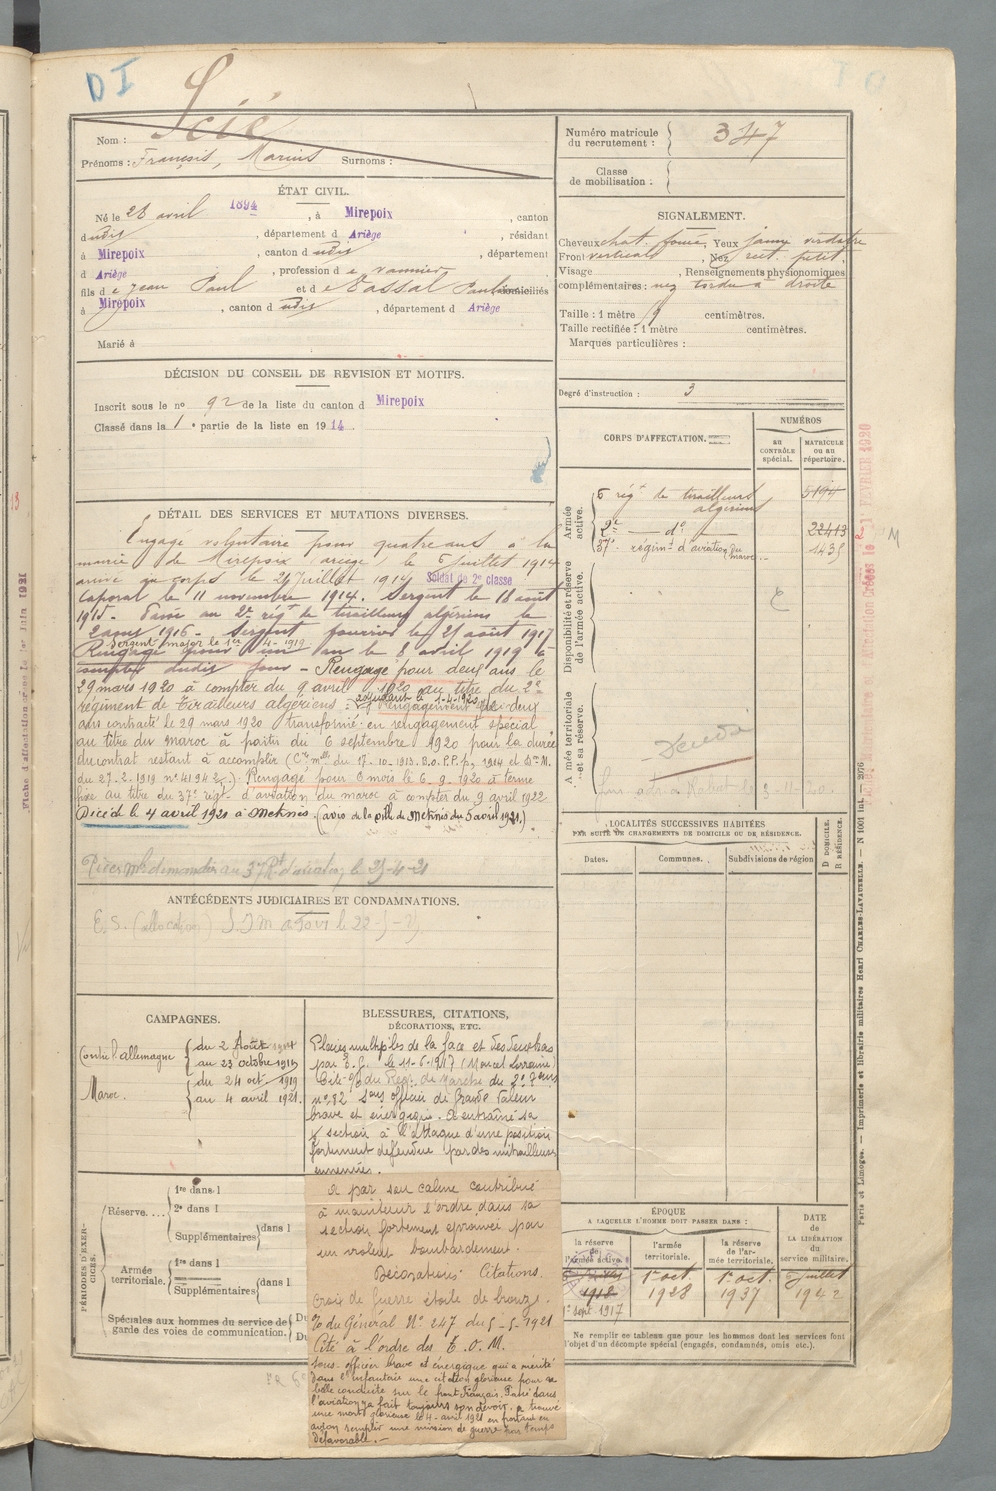 DI
Nom : Scié
Prénoms : François, Marius Surnoms :
Numéro matricule du recrutement : 347
Classe de mobilisation :
ÉTAT CIVIL.
Né le 28 avril 1894, à Mirepoix, canton
dudit, département d Ariège, résidant
à Mirepoix, canton dudit, département
d Ariège, profession de vannier
fils de Jean Paul et de Vassal domiciliés
à Mirepoix, canton dudit, département d Ariège
Marié à
SIGNALEMENT.
Cheveux chat. foncé, Yeux jaune verdâtre
Front vertical, Nez rect. petit.
Visage , Renseignements physionomiques
complémentaires : nez tordu à droite
Taille : 1 mètre centimètres.
Taille rectifiée : 1 mètre centimètres.
Marques particulières :
Degré d'instruction : 3
DÉCISION DU CONSEIL DE REVISION ET MOTIFS.
Inscrit sous le no 92 de la liste du canton d Mirepoix
Classé dans la 1e partie de la liste en 1914.
DÉTAIL DES SERVICES ET MUTATIONS DIVERSES.
Engagé volontaire pour quatre ans à la
mairie de Mirepoix Ariège le 6 juillet 1914
arrivé au corps le juillet 1914 Soldat de 2e classe
Caporal le 11 novembre 1914. Sergent le 18 août
1915. Passé au 2e régt de tirailleurs algériens le
1916. Sergent fourrier le 21 août 1917
Sergent major le 1er 4-1919
Rengagé pour un an le 8 avril 1919 à
compter dudit jour - Rengagé pour deux ans le
29 mars 1920 à compter du 9 avril 1920 au titre du 2e
régiment de tirailleurs algériens : adjudant le 1-4-1920 rengagement de deux
ans contracté le 29 mars 1920 transformé en rengagement spécial
au titre du Maroc à partir du 6 septembre 1920 pour la durée
du contrat restant à accomplir (Cre mlle du 17-10-1913. B.O.P.P. p. 1914 et Don M.
du 27-2-1919 no 4194 2/.) Rengagé pour 6 mois le 6.9.1920 à terme
fixe au titre du 37e régt d'aviation du Maroc à compter du 9 avril 1922
Décédé le 4 avril 1921 à Meknès. (avis de la ville de Meknès du 5 avril 1921.)
Pièces mles demandées au 37e Rt d'aviation le 25-4-21
CORPS D'AFFECTATION.
NUMÉROS
au CONTRÔLE spécial.
MATRICULE OU AU répertoire.
Armée active.
6 régt de tirailleurs algériens 5194
2e — do — 22413
37e régimt d'aviation du maroc 1435
Disponibilité et réserve de l'armée active.
Armée territoriale et sa réserve.
3-11-20.
LOCALITÉS SUCCESSIVES HABITÉES
PAR SUITE DE CHANGEMENTS DE DOMICILE OU DE RÉSIDENCE.
Dates. Communes. Subdivisions de région
D DOMICILE.
R RÉSIDENCE.
ANTÉCÉDENTS JUDICIAIRES ET CONDAMNATIONS.
E.S. (allocation)
CAMPAGNES.
Contre l'allemagne du 2 Août 1914
au 23 octobre 1919
Maroc. du 24 oct 1919
au 4 avril 1921.
BLESSURES, CITATIONS,
DÉCORATIONS, ETC.
Plaies multiples de la face et des deux bras
par E.O. le 11-6-1917 (Marcel Lorraine)
Cité O/ du Régt de Marche du 2e Tirs
no 82 Sous officier de Grande Valeur
brave et énergique. A entraîné sa
1/2 section à l'attaque d'une position
fortement défendue par des mitrailleuses
ennemies.
A par son calme contribué
à maintenir l'ordre dans sa
section fortement éprouvée par
un violent bombardement.
Décorations Citations.
Croix de Guerre étoile de bronze.
O/ du Général No 247 du 5-5-1921
Cité à l'ordre des T.O.M.
Sous-officier brave et énergique qui a mérité
dans l'infanterie une citation glorieuse pour sa
belle conduite sur le front Français. Passé dans
l'aviation y a fait toujours son devoir. A trouvé
une mort glorieuse le 4-avril 1921 en partant en
avion remplir une mission de guerre par temps
défavorable.-
PÉRIODES D'EXERCICES.
Réserve....
1re dans l
2e dans l
Supplémentaires dans l
Armée territoriale.
1re dans l
Supplémentaires dans l
Spéciales aux hommes du service de garde des voies de communication. Du
Du
ÉPOQUE
A LAQUELLE L'HOMME DOIT PASSER DANS :
la réserve de l'armée active.
l'armée territoriale.
la réserve de l'armée territoriale.
DATE DE LA LIBÉRATION du service militaire.
1918
1er sept. 1917
1er oct. 1928
1er oct. 1937
6 juillet 1942
Ne remplir ce tableau que pour les hommes dont les services font
l'objet d'un décompte spécial (engagés, condamnés, omis etc.).
Paris et Limoges. — Imprimerie et librairie militaires Henri CHARLES-LAVAUZELLE. — N 1001 Int. — 2076